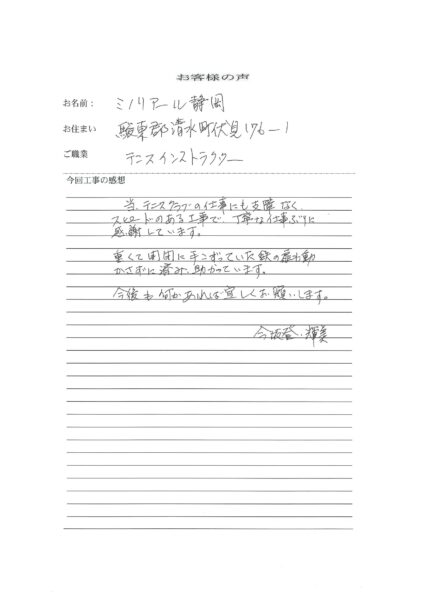 お客様の声
お名前： ミノリアール静岡
お住まい 駿東郡清水町伏見176-1
ご職業 テニスインストラクター
今回工事の感想
当、テニスクラブの仕事にも支障なく
スピードのある工事で、丁寧な仕事ぶりに
感謝しています。
重くて開閉に手こずっていた鉄の扉も動
かさずに済み、助かっています。
今後も何かあれば宜しくお願いします。
今坂登・輝美